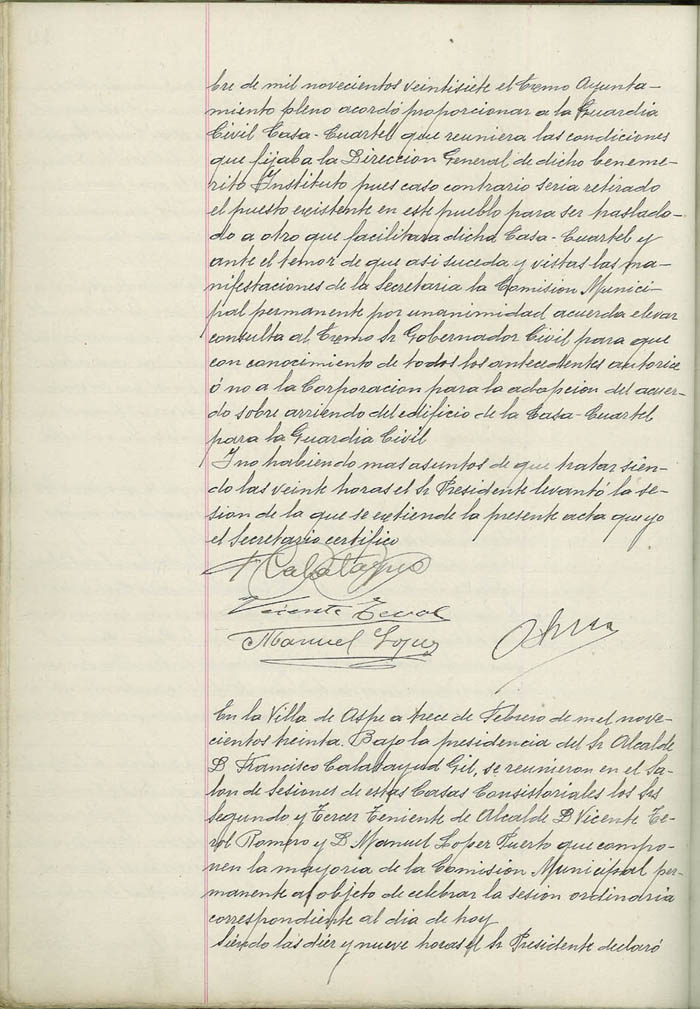 bre de mil novecientos veintisiete el Excmo Ayunta-
miento pleno acordó proporcionar a la Guardia
Civil Casa-Cuartel que reuniera las condiciones
que fijaba la Direccion General de dicho beneme-
rito Instituto pues caso contrario seria retirado
el puesto existente en este pueblo para ser traslada-
do a otro que facilitara dicha Casa-Cuartel y
ante el temor de que asi suceda y vistas las ma-
nifestaciones de la Secretaria la Comision Munici-
pal permanente por unanimidad acuerda elevar
consulta al Excmo Sr Gobernador Civil para que
con conocimiento de todos los antecedentes autorice
ó no a la Corporacion para la adopcion del acuer-
do sobre arriendo del edificio de la Casa-Cuartel
para la Guardia Civil
Y no habiendo mas asuntos de que tratar sien-
do las veinte horas el Sr Presidente levantó la se-
sion de la que se extiende la presente acta que yo
el Secretario certifico
F Calatayud
Vicente Terol
Manuel Lopez
En la Villa de Aspe a trece de Febrero de mil nove-
cientos treinta. Bajo la presidencia del Sr Alcalde
D Francisco Calatayud Gil, se reunieron en el Sa-
lon de Sesiones de estas Casas Consistoriales los Srs
Segundo y Tercer Teniente de Alcalde D Vicente Te-
rol Romero y D Manuel Lopez Puerto que compo-
nen la mayoria de la Comision Municipal per-
manente al objeto de celebrar la sesion ordinaria
correspondiente al dia de hoy
Siendo las diez y nueve horas el Sr Presidente declaró